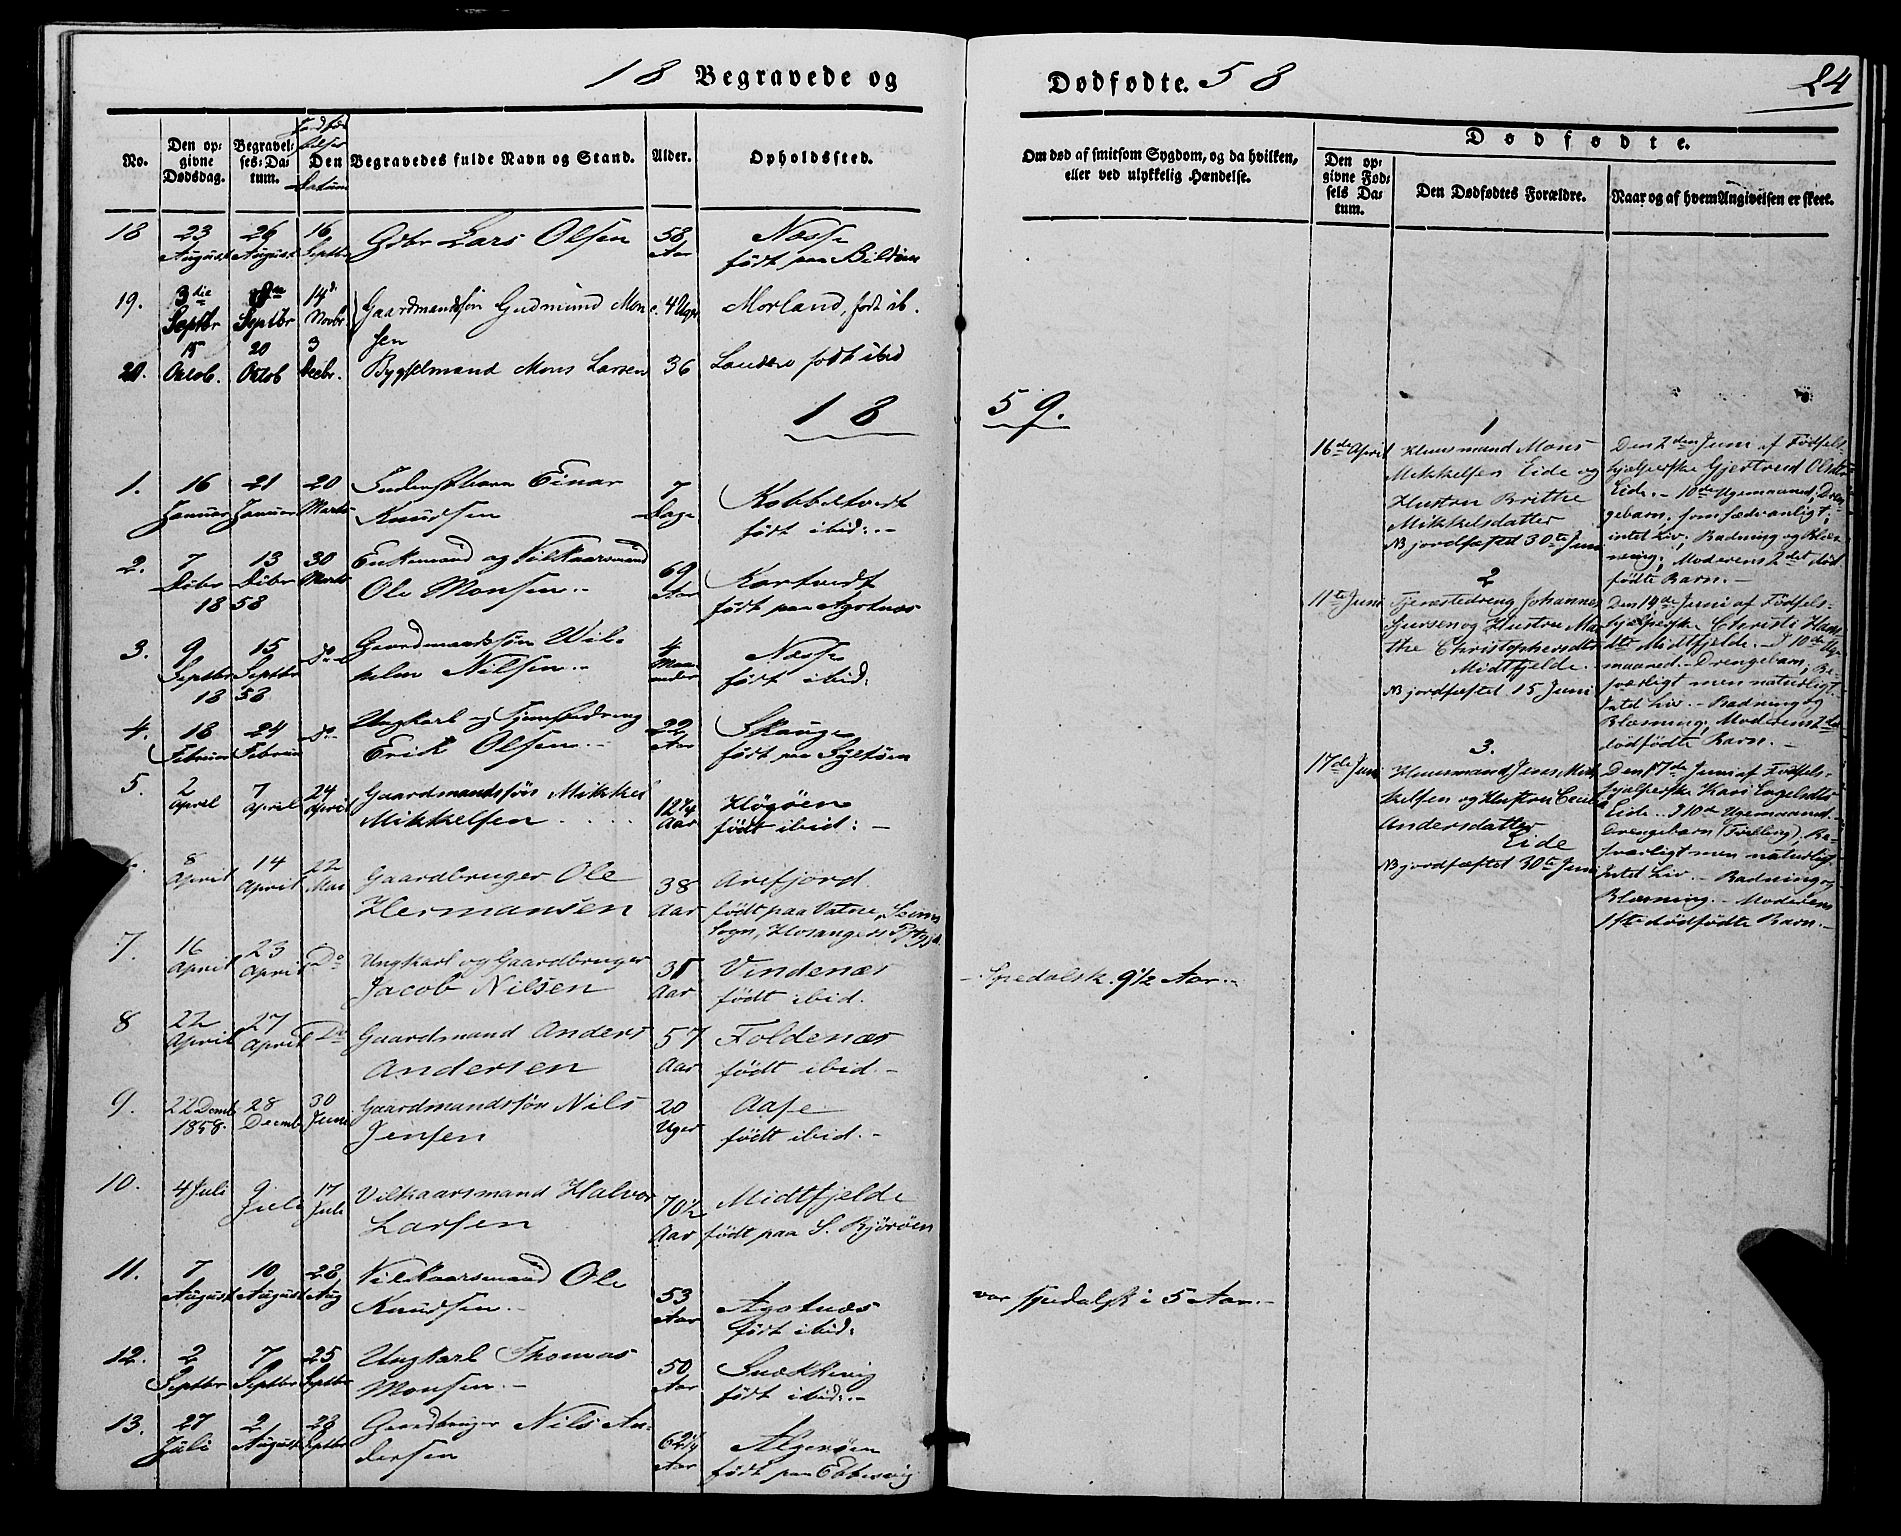 18 Begravede og
Dødfødte. 58
24
No.
Den opgivne Dødsdag.
Begravelses-Datum.
Den Datum
Begravedes fulde Navn og Stand.
Alder.
Opholdssted.
Om død af smitsom Sygdom, og da hvilken,
eller ved ulykkelig Hændelse.
Dødfødte.
Den opgivne Fødsels Datum.
Den Dødfødtes Forældre.
Naar og af hvem Angivelsen er skeet.
18 23 26 16 Gdbr Lars Olsen 58 Næsse
August August Septbr Aar født paa Bildøen
19. 3die 14d Gaardmandssøn Gudmund Mon 4 Uger Morland, født ib.
Septbr Septbr Novbr. sen
15 20 3
20. Octob. Octob Decbr. Bygselmand Mons Larsen 36 Landro født ibid
18 59.
1. 16 21 20 Inderstbarn Einar 7 Kobbeltvedt
Januar Januar Marts Knudsen Dage født ibid: -
2. 7 13 30 Enkemand og Vilkaarsmand 69 Kartvedt
Dcbr Dcbr Marts Ole Monsen.. Aar født paa Agotnæs
18 58
3. 9 15 Do Gaardmandssøn Wil- 4 Næsse
Septbr Septbr helm Nilsen.. Maaneder født ibid:
18 58
4. 18 24 Do Ungkarl og Tjenestedreng 22 Skauge
Februar Februar Erik Olsen.. Aar født paa
5. 2 7 24 Gaardmandssøn Mikkel 12 1/4 Kløgøen
April April April Mikkelsen Aar født ibid: -
8 14 22 Gaardbruger Ole 38 Arefjord
April April Mai Hermansen Aar født paa Vatne, Seims
Sogn, Hosangers Pgjd.
7. 16 23 Do Ungkarl og Gaardbruger 35 Vindenæs - Spedalsk. 9 1/2 Aar.-
April April Jacob Nilsen Aar født ibid.
8 22 27 Do Gaardmand Anders 57 Foldenæs
April April Andersen Aar født ibid.-
9. 22 Decmb 28 30 Gaardmandssøn Nils 20 Aase
1858. Decemb Juni Jensen Uger født ibid.-
10. 4 Juli 9 17 Vilkaarsmand Halvor 70 1/2 Midtfjelde
Juli Juli Larsen Aar født paa S. Bjørøen
11. 7 10 28 Vilkaarsmand Ole 53 Agotnæs var spedalsk i 5 Aar.-
August August Aug Knudsen.- Aar født ibid:
12. 2 7 25 Ungkarl Thomas 50 Snekkevig
Septbr Septbr Septbr Monsen.- Aar født ibid:-
13. 27 2 28 Gaardbruger Nils An- 62 1/4 Algerøen
Juli August Septbr dersen Aar født paa Ebbesvig
1
16de April Huusmand Mons
Mikkelsen Eide og
Hustru Brithe
Mikkelsdatter
NB jordfæstet 30te Juni
Den 2den Juni af Fødsels-
hjælperske Gjertrud Olsdtr
Eide. - 10de Ugemaaned, Dren-
gebarn; som sædvanligt,
intet Liv; Badning og Blæs-
ning; Moderens 2det død
fødte Barn.-
2
11te Juni Tjenestedreng Johannes
Iversen og Hustru Mar
the Christophersdtr
Midtfjelde.
NB jordfæstet 15 Juni
Den 14de Juni af Fødsels-
hjælperske Christi Hans
dtr Midtfjelde. I 10de Uge
maaned.- Drengebarn; Be-
sværligt men naturligt.
Intet Liv.- Badning og
Blæsning; Moderens 2det
dødfødte Barn.-
3.
17de Juni Huusmand Jens Mik
kelsen og Hustru Cecilie
Andersdatter
Eide
NB jordfæstet 30te Juni
Den 17de Juni af Fødsels-
hjælperske Kari Engelsdtr
Eide. I 10de Ugemaaned.-
Drengebarn (Tvilling); Be-
sværligt men naturligt
Intet Liv.- Badning og
Blæsning.- Moderens
1ste dødfødte Barn.-